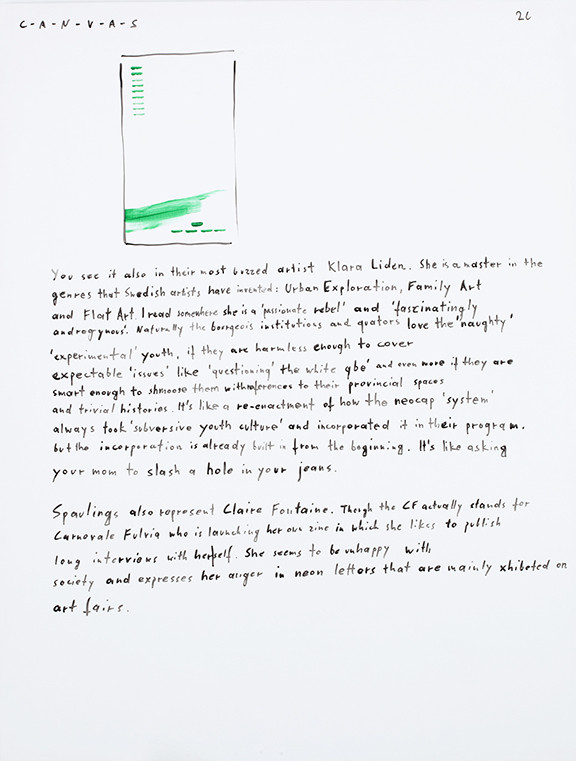 C-A-N-V-A-S
26
You see it also in their most buzzed artist Klara Liden. She is a master in the
genres that Swedish artists have invented: Urban Exploration, Family Art
and Flat Art. I read somewhere she is a 'passionate rebel' and 'fascinatingly
androgynous'. Naturally the borgeois institutions and qrators love the 'naughty'
'experimental' youth, if they are harmless enough to cover
expectable 'issues' like 'questioning' the white qbe' and even more if they are
smart enough to shmoose them with references to their provincial spaces
and trivial histories. It's like a re-enactment of how the neocap 'system'
always took 'subversive youth culture' and incorporated it in their program.
but the incorporation is already built in from the beginning. It's like asking
your mom to slash a hole in your jeans.
Spaulings also represent Claire Fontaine. Though the CF actually stands for
Carnevale Fulvia who is launching her own zine in which she likes to publish
long interviews with herself. She seems to be unhappy with
society and expresses her anger in neon letters that are mainly xhibeted on
art fairs.